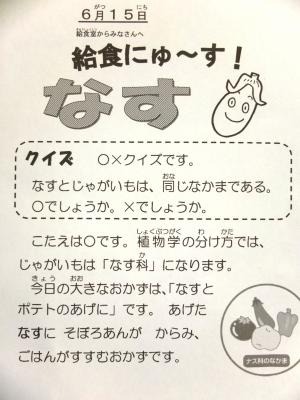 6月15日
給食室からみなさんへ
給食にゅ～す！
なす
クイズ　〇×クイズです。
なすとじゃがいもは、同じなかまである。
〇でしょうか。×でしょうか。
こたえは〇です。植物学の分け方では、
じゃがいもは「なす科」になります。
今日の大きなおかずは、「なすと
ポテトのあげに」です。あげた
なすに そぼろあんが からみ、
ごはんがすすむおかずです。
ナス科のなかま